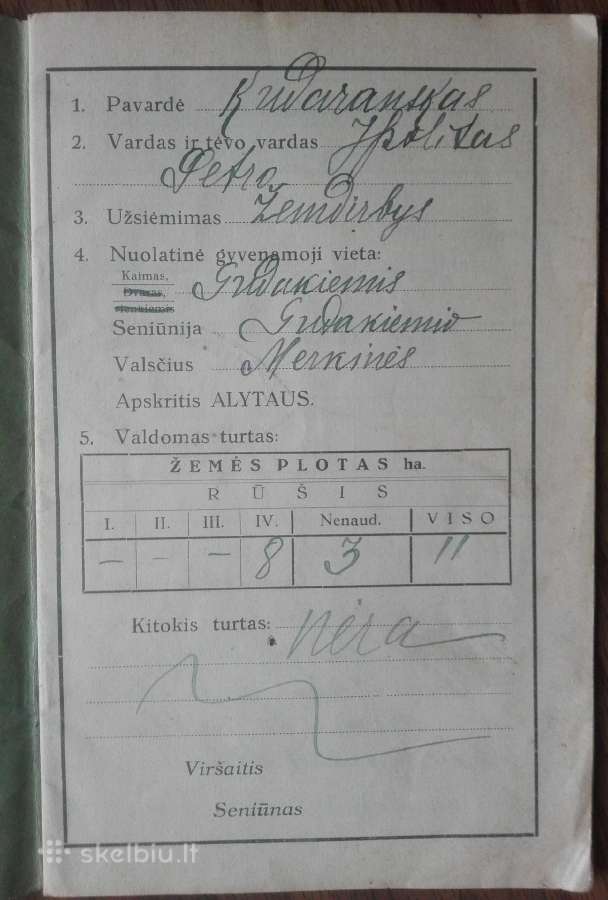 1. Pavardė Kudarauskas
2. Vardas ir tėvo vardas Ipolitas
Petro
3. Užsiėmimas Žemdirbys
4. Nuolatinė gyvenamoji vieta:
Kaimas, Gudakiemis
Dvaras,
Vienkiemis
Seniūnija Gudakiemio
Valsčius Merkinės
Apskritis ALYTAUS.
5. Valdomas turtas:
ŽEMĖS PLOTAS ha.
RŪŠIS
I. II. III. IV. Nenaud. VISO
— — — 8 3 11
Kitokis turtas: nėra
Viršaitis
Seniūnas
skelbiu.lt